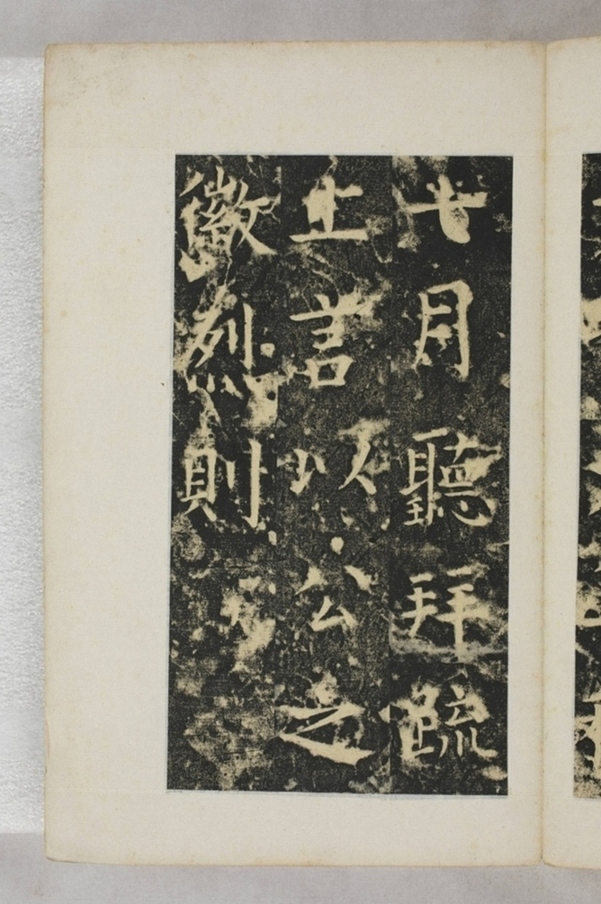 七月聽拜疏
上言以公之
徽烈則